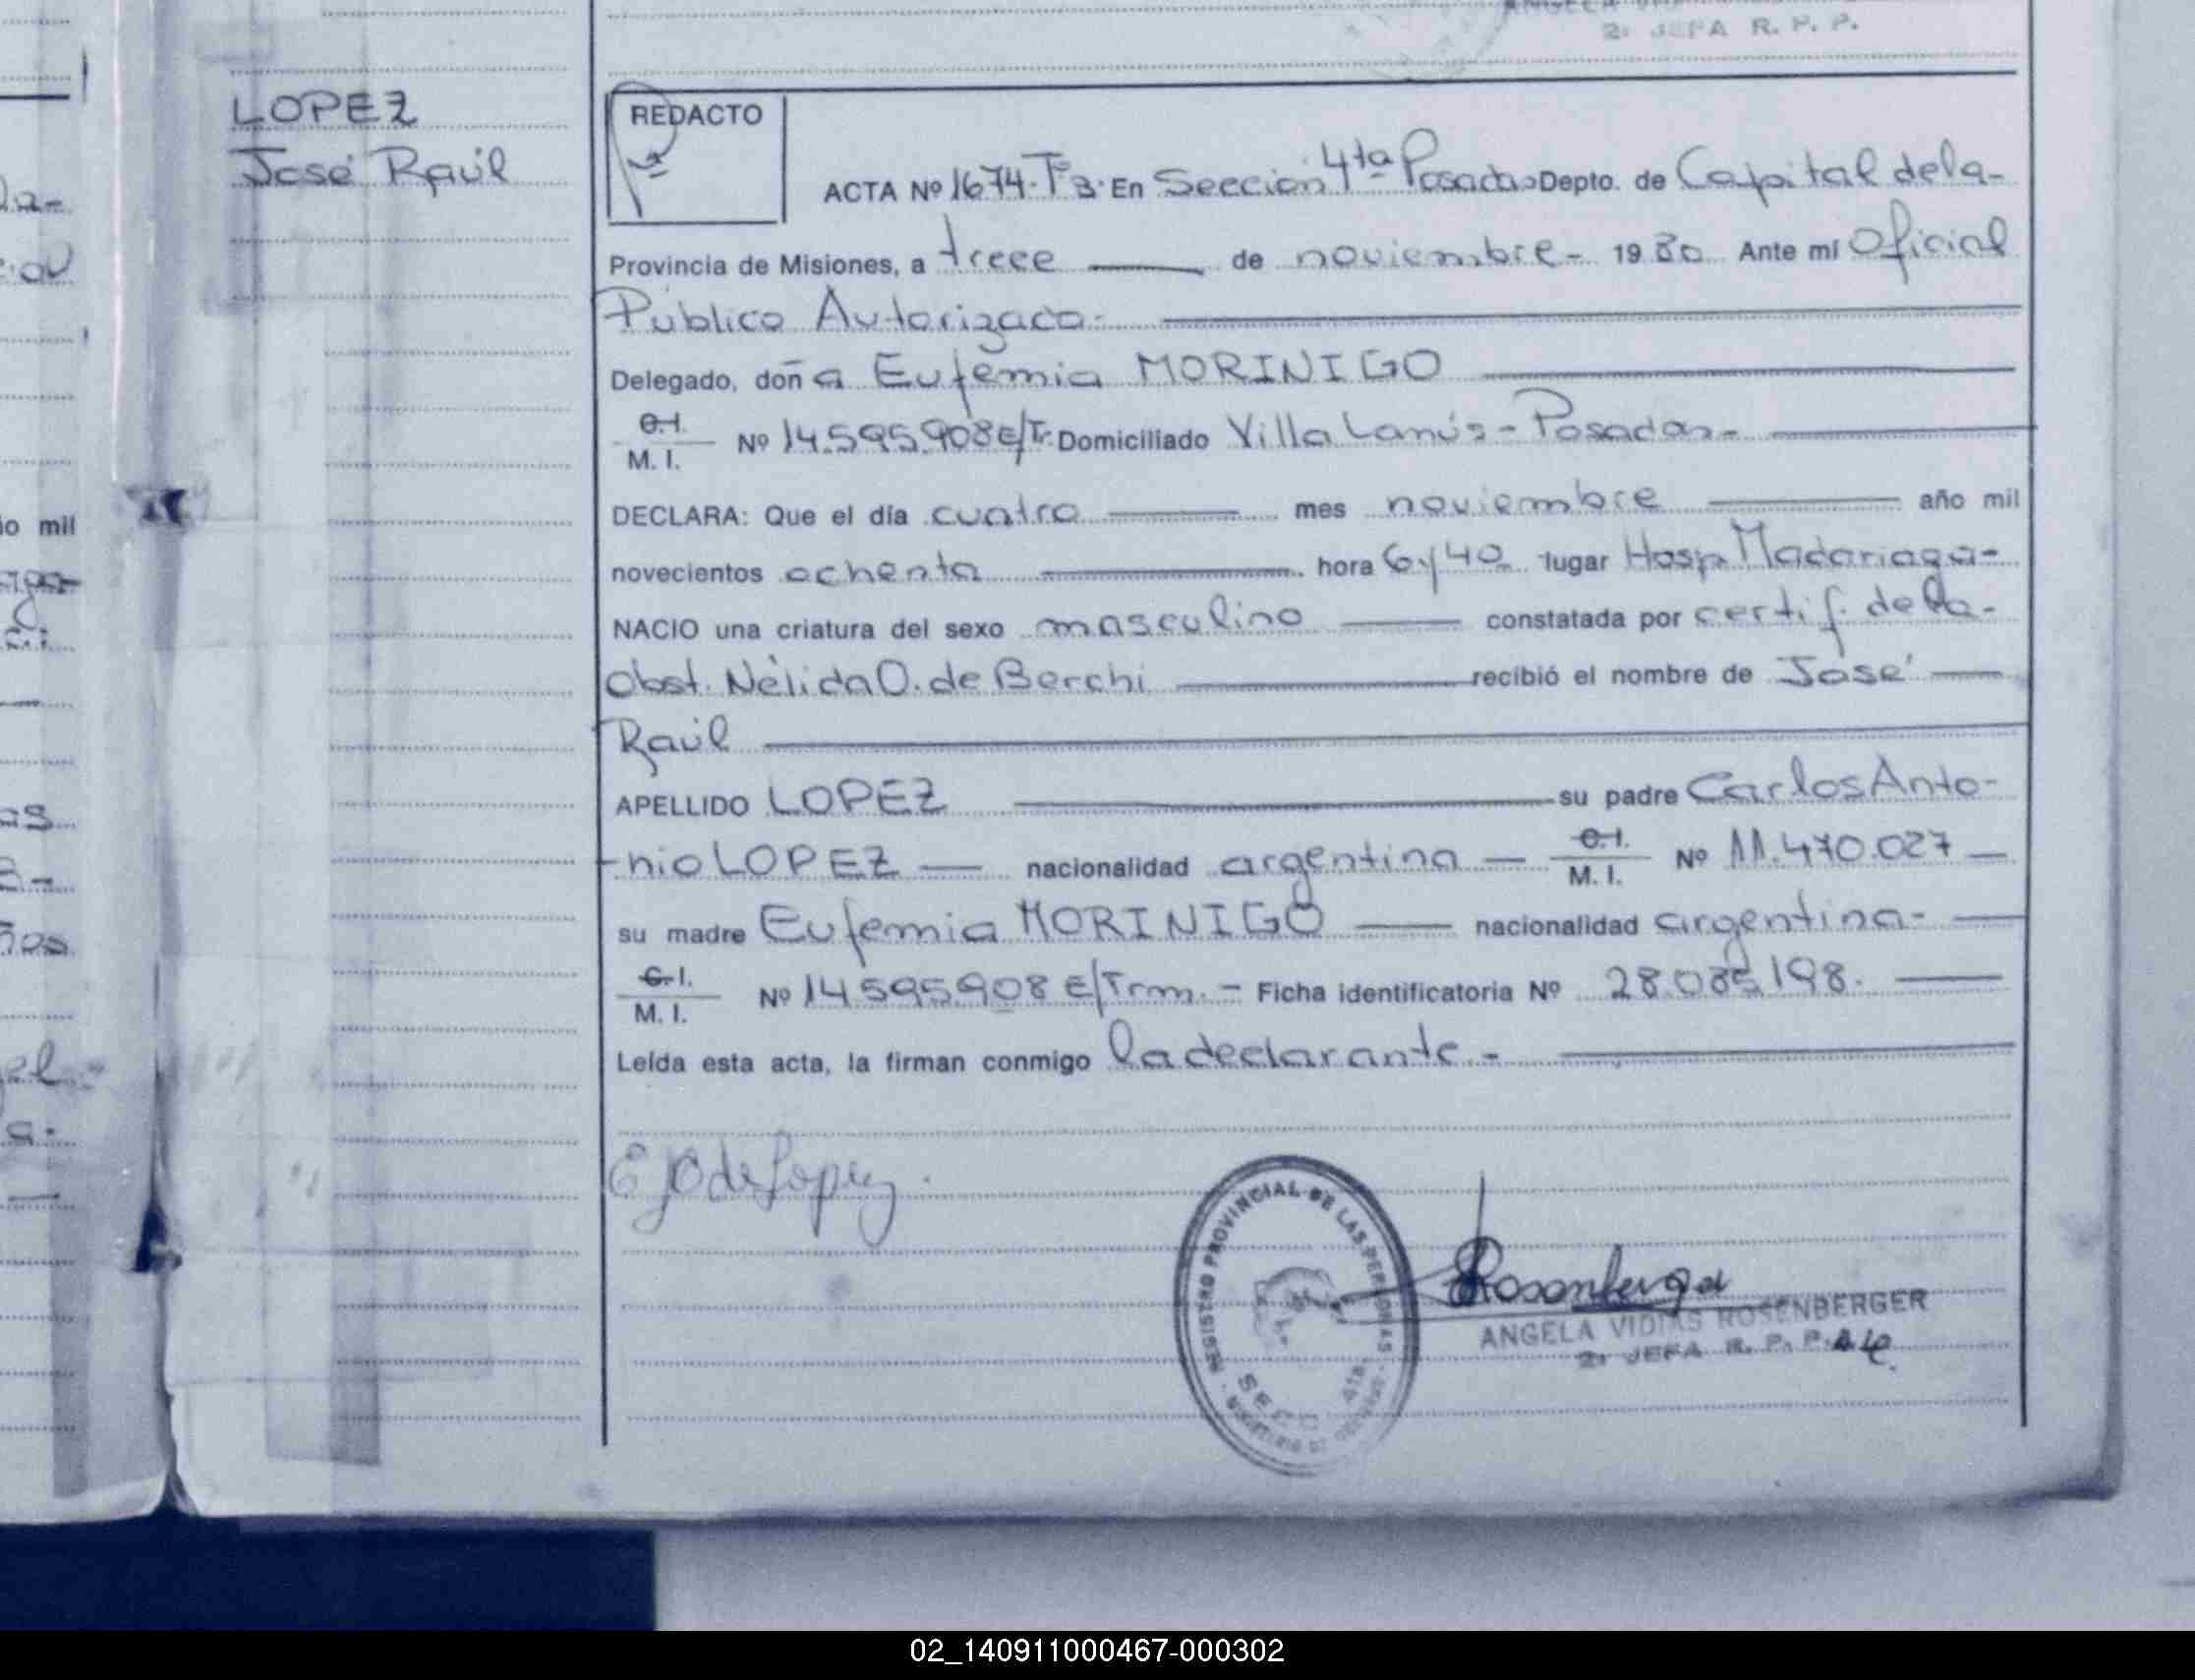 2ª JEFA R. P. P.
LOPEZ
José Raúl
REDACTO
ACTA Nº 1674. Tº 3. En Sección 4ta Posadas Depto. de Capital de la-
Provincia de Misiones, a trece de noviembre - 1980 Ante mí Oficial
Público Autorizado.
Delegado, doña Eufemia MORINIGO
C.I. M. I. Nº 14.595.908 E/Tr. Domiciliado Villa Lanús - Posadas -
DECLARA: Que el día cuatro mes noviembre año mil
novecientos ochenta hora 6 y 40 lugar Hosp. Madariaga-
NACIO una criatura del sexo masculino constatada por certif. de la-
Obst. Nélida O. de Berchi recibió el nombre de José
Raúl
APELLIDO LOPEZ su padre Carlos Anto-
-nio LOPEZ nacionalidad argentina C.I. M. I. Nº 11.470.027
su madre Eufemia MORINIGO nacionalidad argentina-
C.I. M. I. Nº 14.595.908 E/Trm. - Ficha identificatoria Nº 28.085.198.
Leída esta acta, la firman conmigo la declarante -
de Lopez.
REGISTRO PROVINCIAL DE LAS PERSONAS
Rosenberger
ANGELA VIDIAS ROSENBERGER
2ª JEFA R. P. P.
io mil
02_140911000467-000302